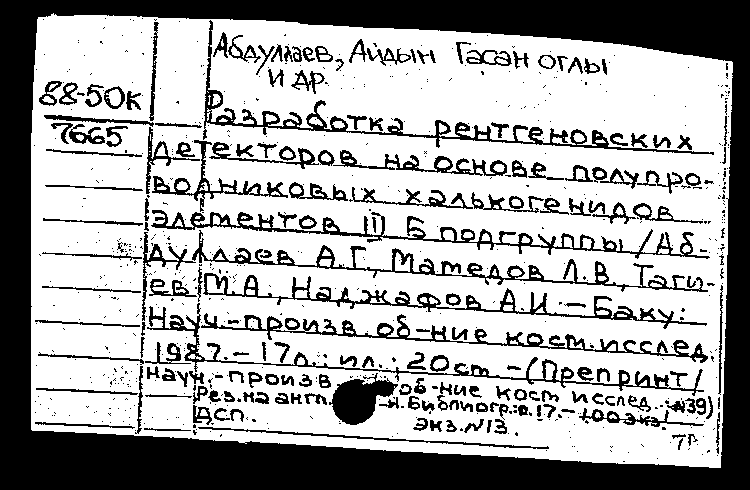 Абдуллаев, Айдын Гасан оглы
и др.
88-50К
7665
Разработка рентгеновских
детекторов на основе полупро-
водниковых халькогенидов
элементов III Б подгруппы /Аб-
дуллаев А.Г., Мамедов Л.В., Таги-
ев М.А., Наджафов А.И.-Баку:
Науч.-произв. об-ние косм. исслед.
1987.-17л.: ил.; 20см.-(Препринт/
Науч.-произв. об-ние косм исслед.; №39)
Рез. на англ. я. Библиогр.: с.17.- 100 экз.
ДСП. Экз. №13.